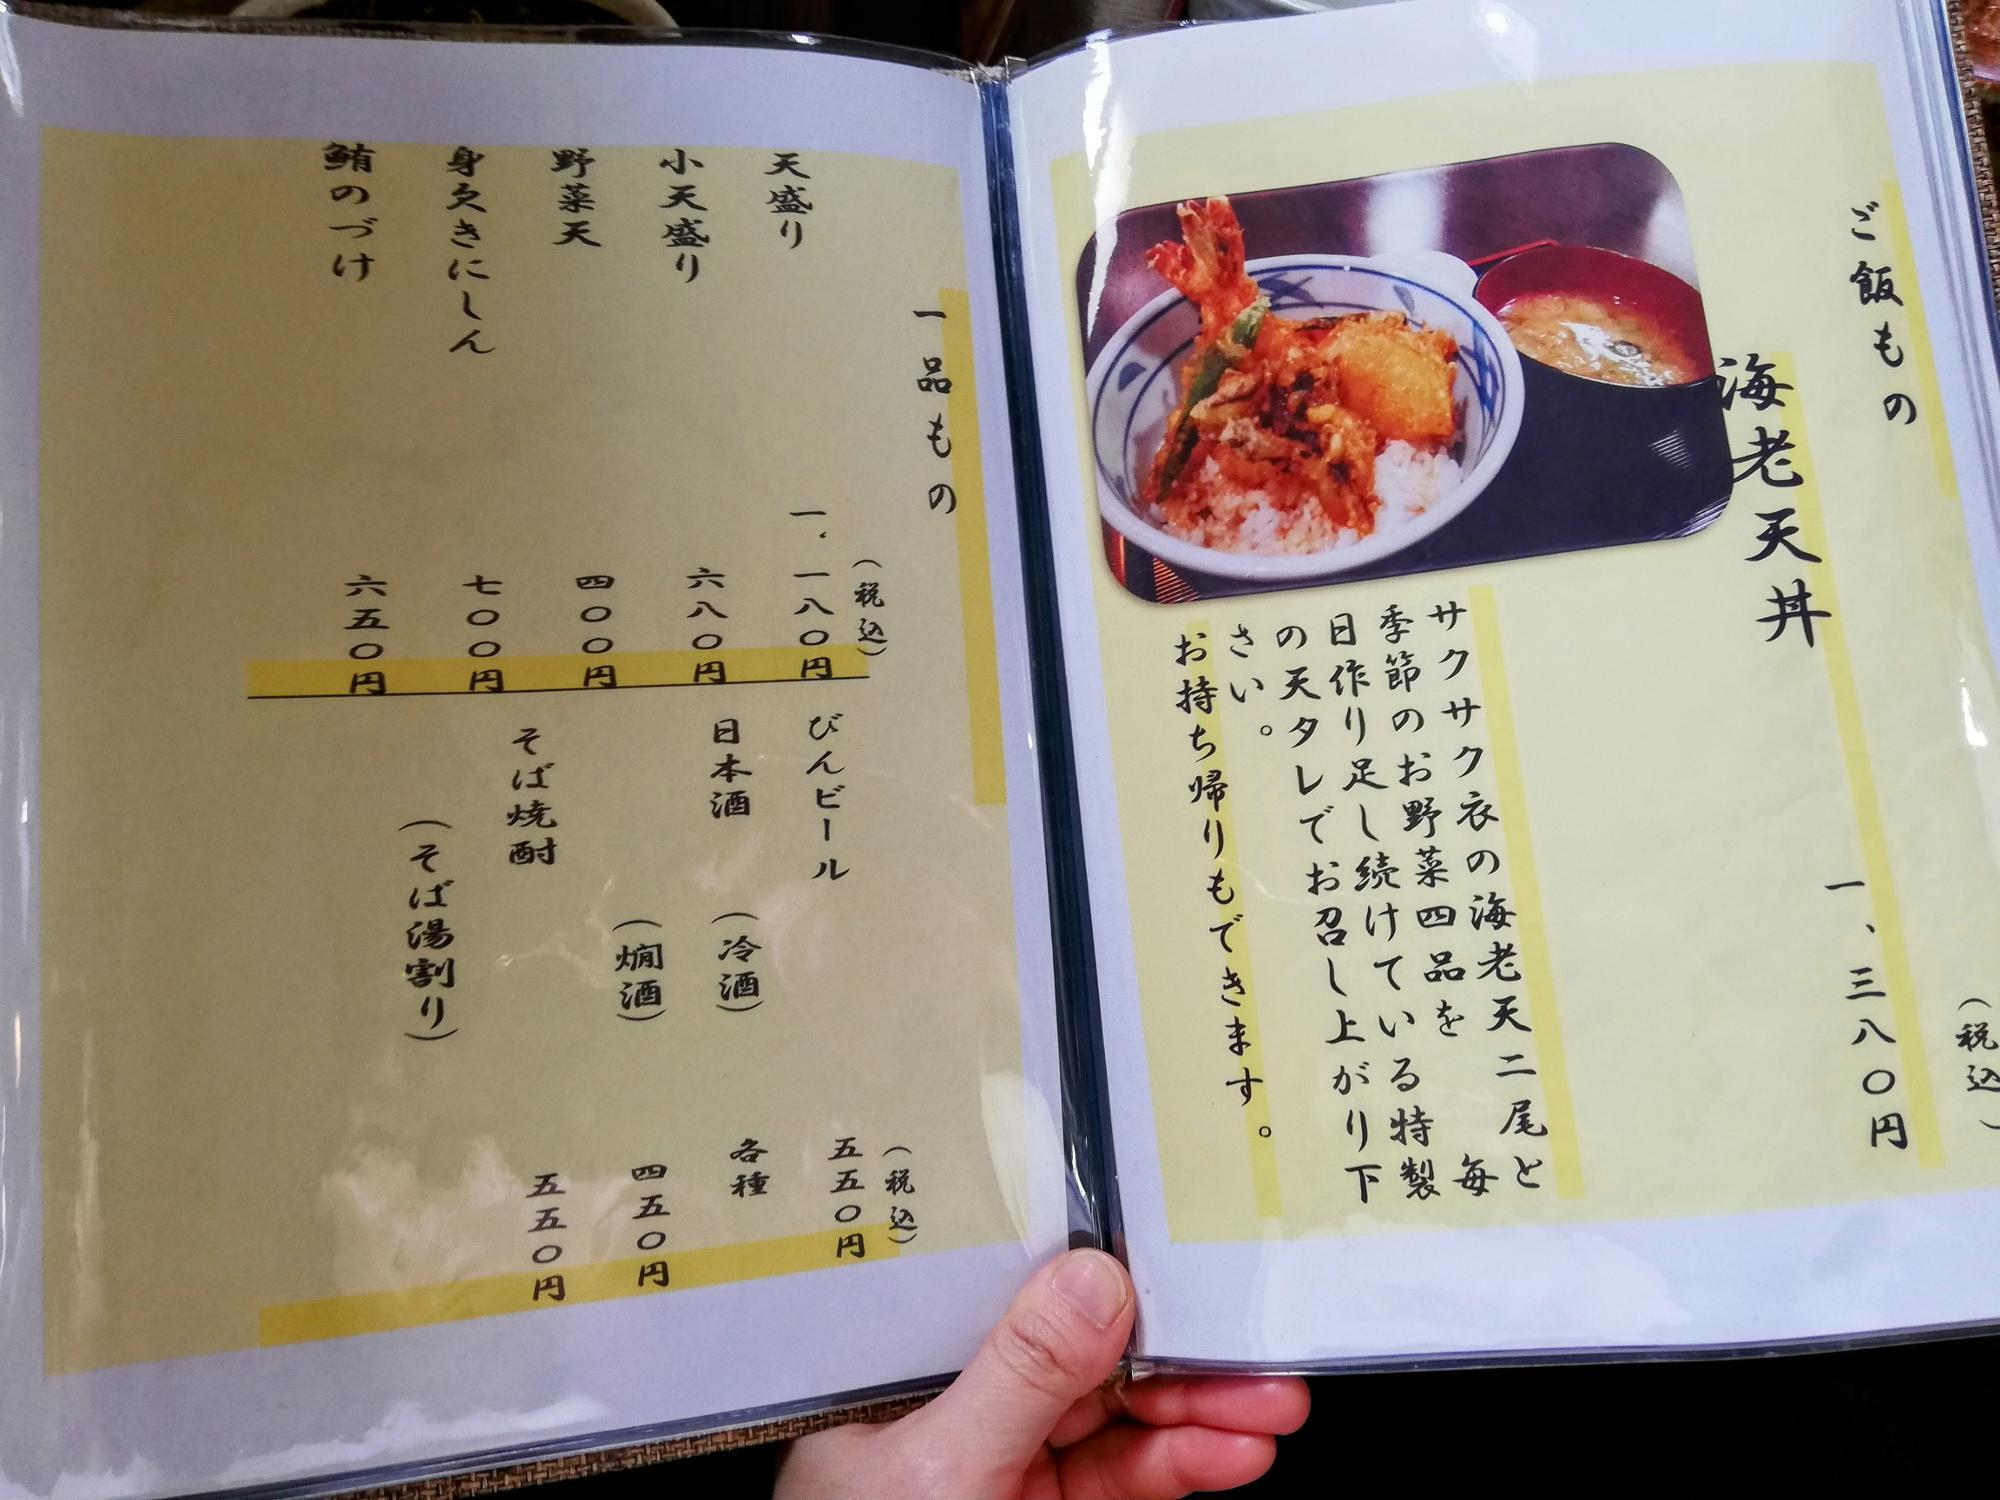 ご飯もの
(税込)
海老天丼
一、三八〇円
サクサク衣の海老天二尾と
季節のお野菜四品を 毎
日作り足し続けている特製
の天タレでお召し上がり下
さい。
お持ち帰りもできます。
一品もの
(税込)
天盛り 一、一八〇円
小天盛り 六八〇円
野菜天 四〇〇円
身欠きにしん 七〇〇円
鮪のづけ 六五〇円
(税込)
びんビール 五五〇円
日本酒 (冷酒) 各種
(燗酒) 四五〇円
そば焼酎 五五〇円
(そば湯割り)